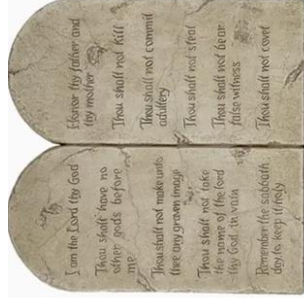 I am the Lord thy God
Thou shalt have no
other gods before
me
Thou shalt not make unto
thee any graven image
Thou shalt not take
the name of the Lord
thy God in vain
Remember the sabbath
day, to keep it holy
Honor thy father and
thy mother
Thou shalt not kill
Thou shalt not commit
adultery
Thou shalt not steal
Thou shalt not bear
false witness
Thou shalt not covet